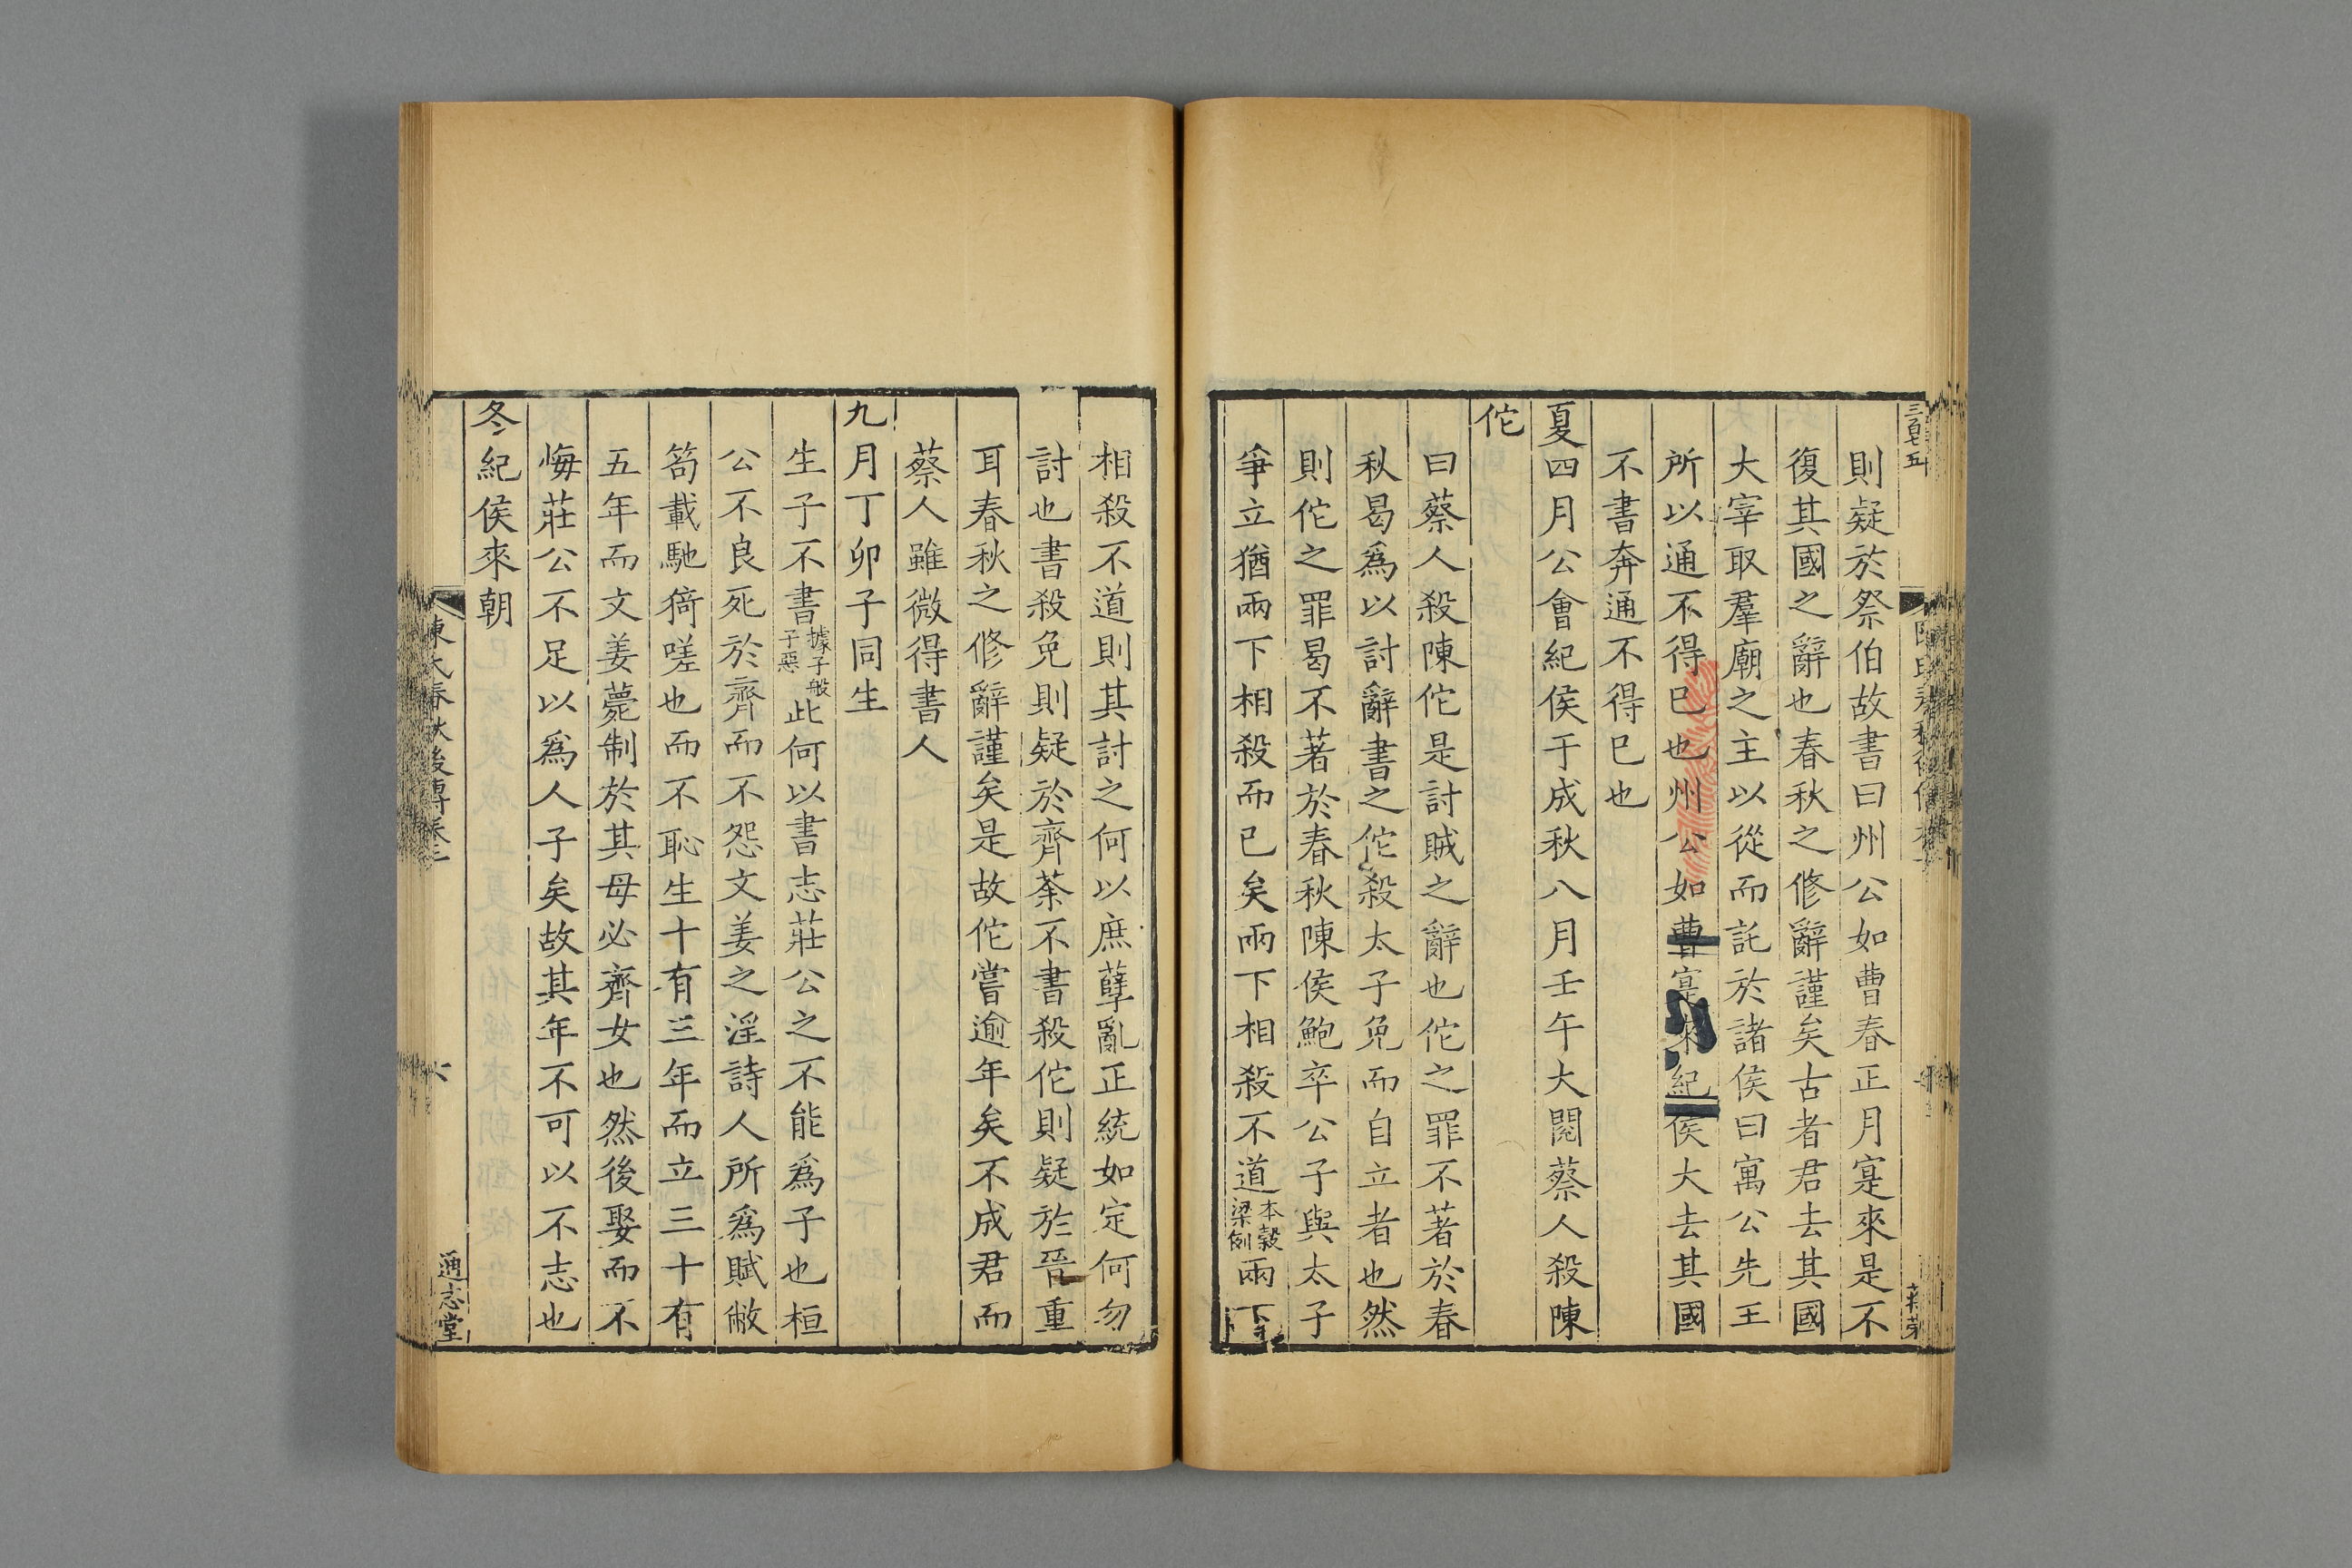 則疑於祭伯故書曰州公如曹春正月寔來是不
復其國之辭也春秋之修辭謹矣古者君去其國
大宰取羣廟之主以從而託於諸侯曰寓公先王
所以通不得巳也州公如曹寔來紀侯大去其國
不書奔通不得巳也
夏四月公會紀侯于成秋八月壬午大閱蔡人殺陳
佗
曰蔡人殺陳佗是討賊之辭也佗之罪不著於春
秋曷爲以討辭書之佗殺太子免而自立者也然
則佗之罪曷不著於春秋陳侯鮑卒公子與太子
爭立猶兩下相殺而巳矣兩下相殺不道本穀梁例兩下
相殺不道則其討之何以庶孽亂正統如定何勿
討也書殺免則疑於齊荼不書殺佗則疑於晉重
耳春秋之修辭謹矣是故佗嘗逾年矣不成君而
蔡人雖微得書人
九月丁卯子同生
生子不書據子般子惡此何以書志莊公之不能爲子也桓
公不良死於齊而不怨文姜之淫詩人所爲賦敝
笱載馳猗嗟也而不恥生十有三年而立三十有
五年而文姜薨制於其母必齊女也然後娶而不
悔莊公不足以爲人子矣故其年不可以不志也
冬紀侯來朝
陳氏春秋後傳卷二
六
通志堂